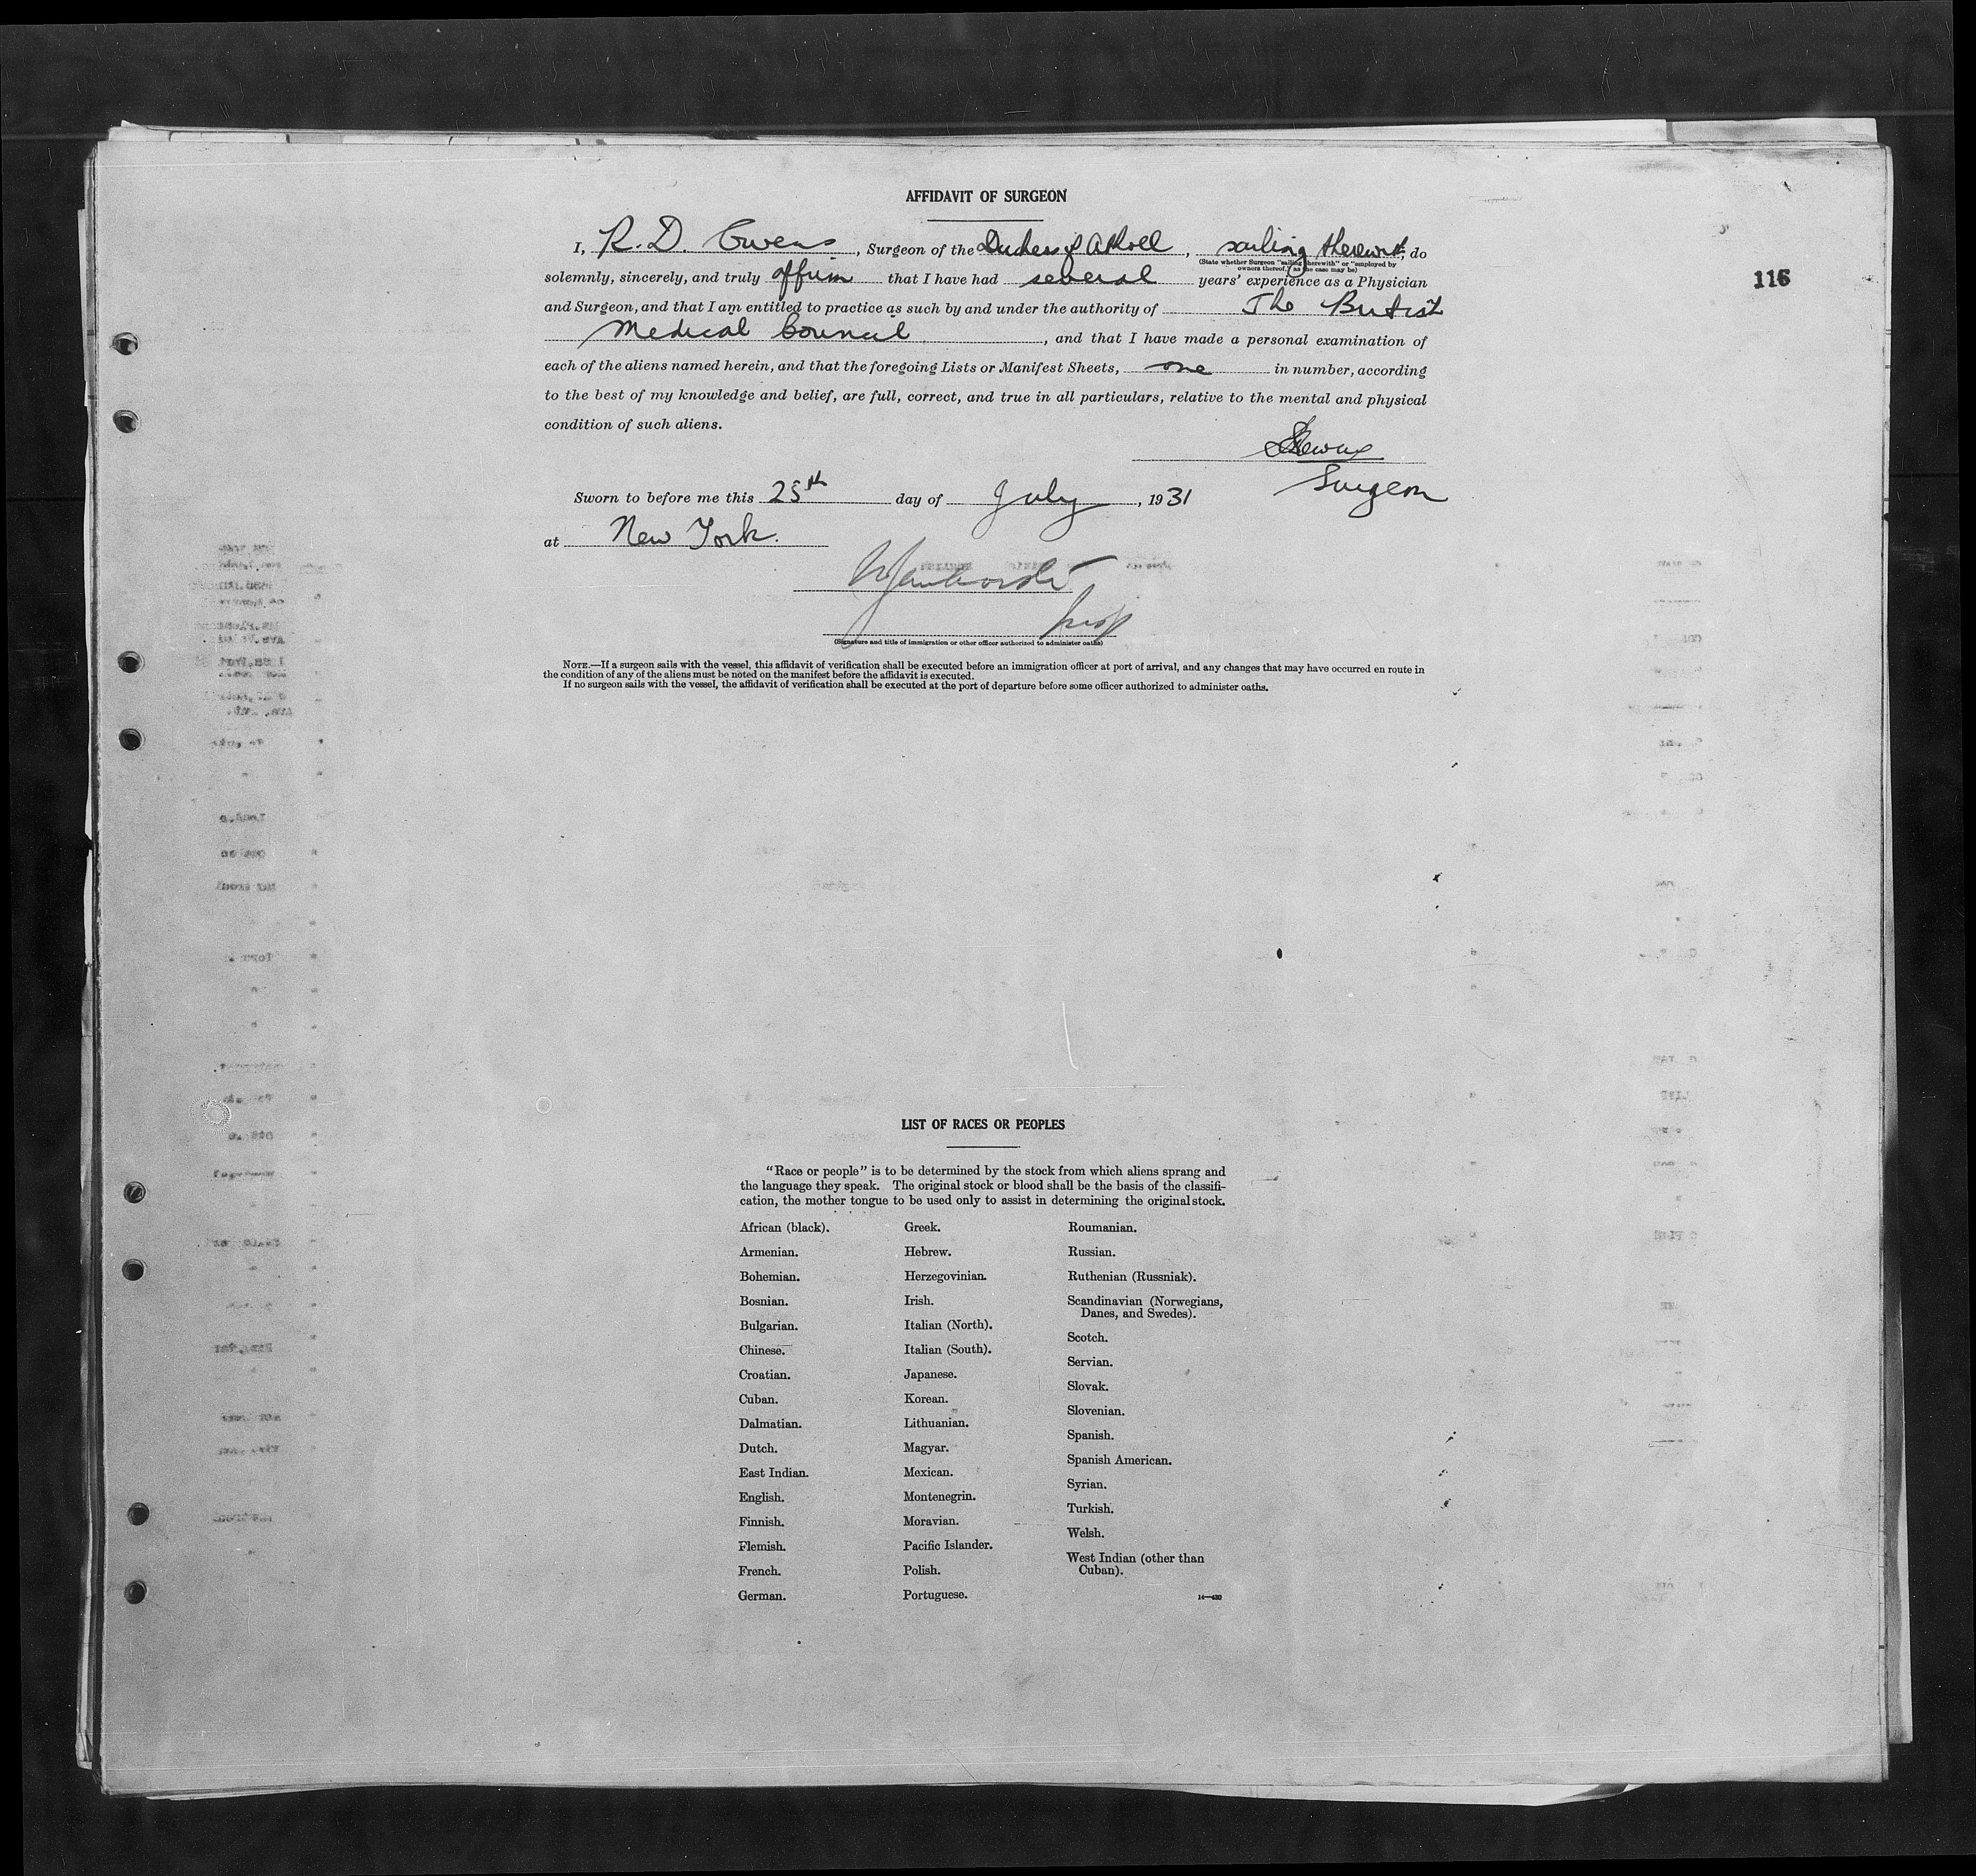 AFFIDAVIT OF SURGEON
I, R. D. Owens, Surgeon of the Duchess of Atholl, sailing therewith, do
(State whether Surgeon "sailing therewith" or "employed by
owners thereof," as the case may be)
116
solemnly, sincerely, and truly affirm that I have had several years' experience as a Physician
and Surgeon, and that I am entitled to practice as such by and under the authority of The British
Medical Council, and that I have made a personal examination of
each of the aliens named herein, and that the foregoing Lists or Manifest Sheets, one in number, according
to the best of my knowledge and belief, are full, correct, and true in all particulars, relative to the mental and physical
condition of such aliens.
Surgeon
Sworn to before me this 25th day of July, 1931
at New York.
(Signature and title of immigration or other officer authorized to administer oaths)
NOTE.—If a surgeon sails with the vessel, this affidavit of verification shall be executed before an immigration officer at port of arrival, and any changes that may have occurred en route in
the condition of any of the aliens must be noted on the manifest before the affidavit is executed.
If no surgeon sails with the vessel, the affidavit of verification shall be executed at the port of departure before some officer authorized to administer oaths.
LIST OF RACES OR PEOPLES
"Race or people" is to be determined by the stock from which aliens sprang and
the language they speak. The original stock or blood shall be the basis of the classifi-
cation, the mother tongue to be used only to assist in determining the original stock.
African (black).
Armenian.
Bohemian.
Bosnian.
Bulgarian.
Chinese.
Croatian.
Cuban.
Dalmatian.
Dutch.
East Indian.
English.
Finnish.
Flemish.
French.
German.
Greek.
Hebrew.
Herzegovinian.
Irish.
Italian (North).
Italian (South).
Japanese.
Korean.
Lithuanian.
Magyar.
Mexican.
Montenegrin.
Moravian.
Pacific Islander.
Polish.
Portuguese.
Roumanian.
Russian.
Ruthenian (Russniak).
Scandinavian (Norwegians,
Danes, and Swedes).
Scotch.
Servian.
Slovak.
Slovenian.
Spanish.
Spanish American.
Syrian.
Turkish.
Welsh.
West Indian (other than
Cuban).
14—430